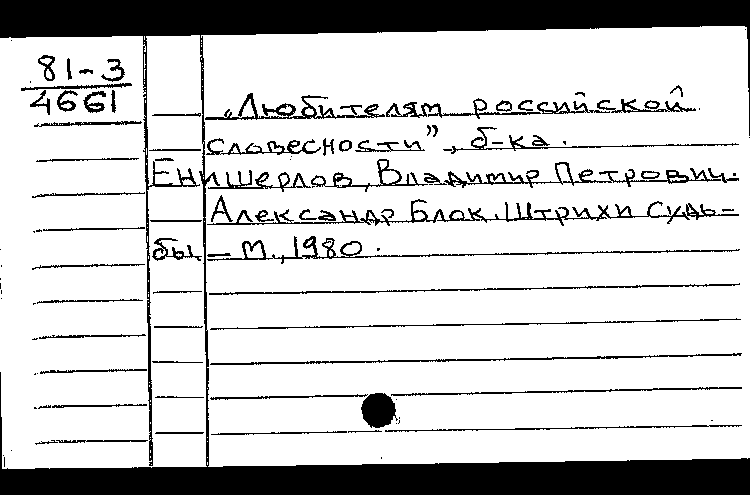 81-3
4661
„Любителям российской
словесности", б-ка.
Енишерлов, Владимир Петрович.
Александр Блок. Штрихи судь-
бы. – М., 1980.